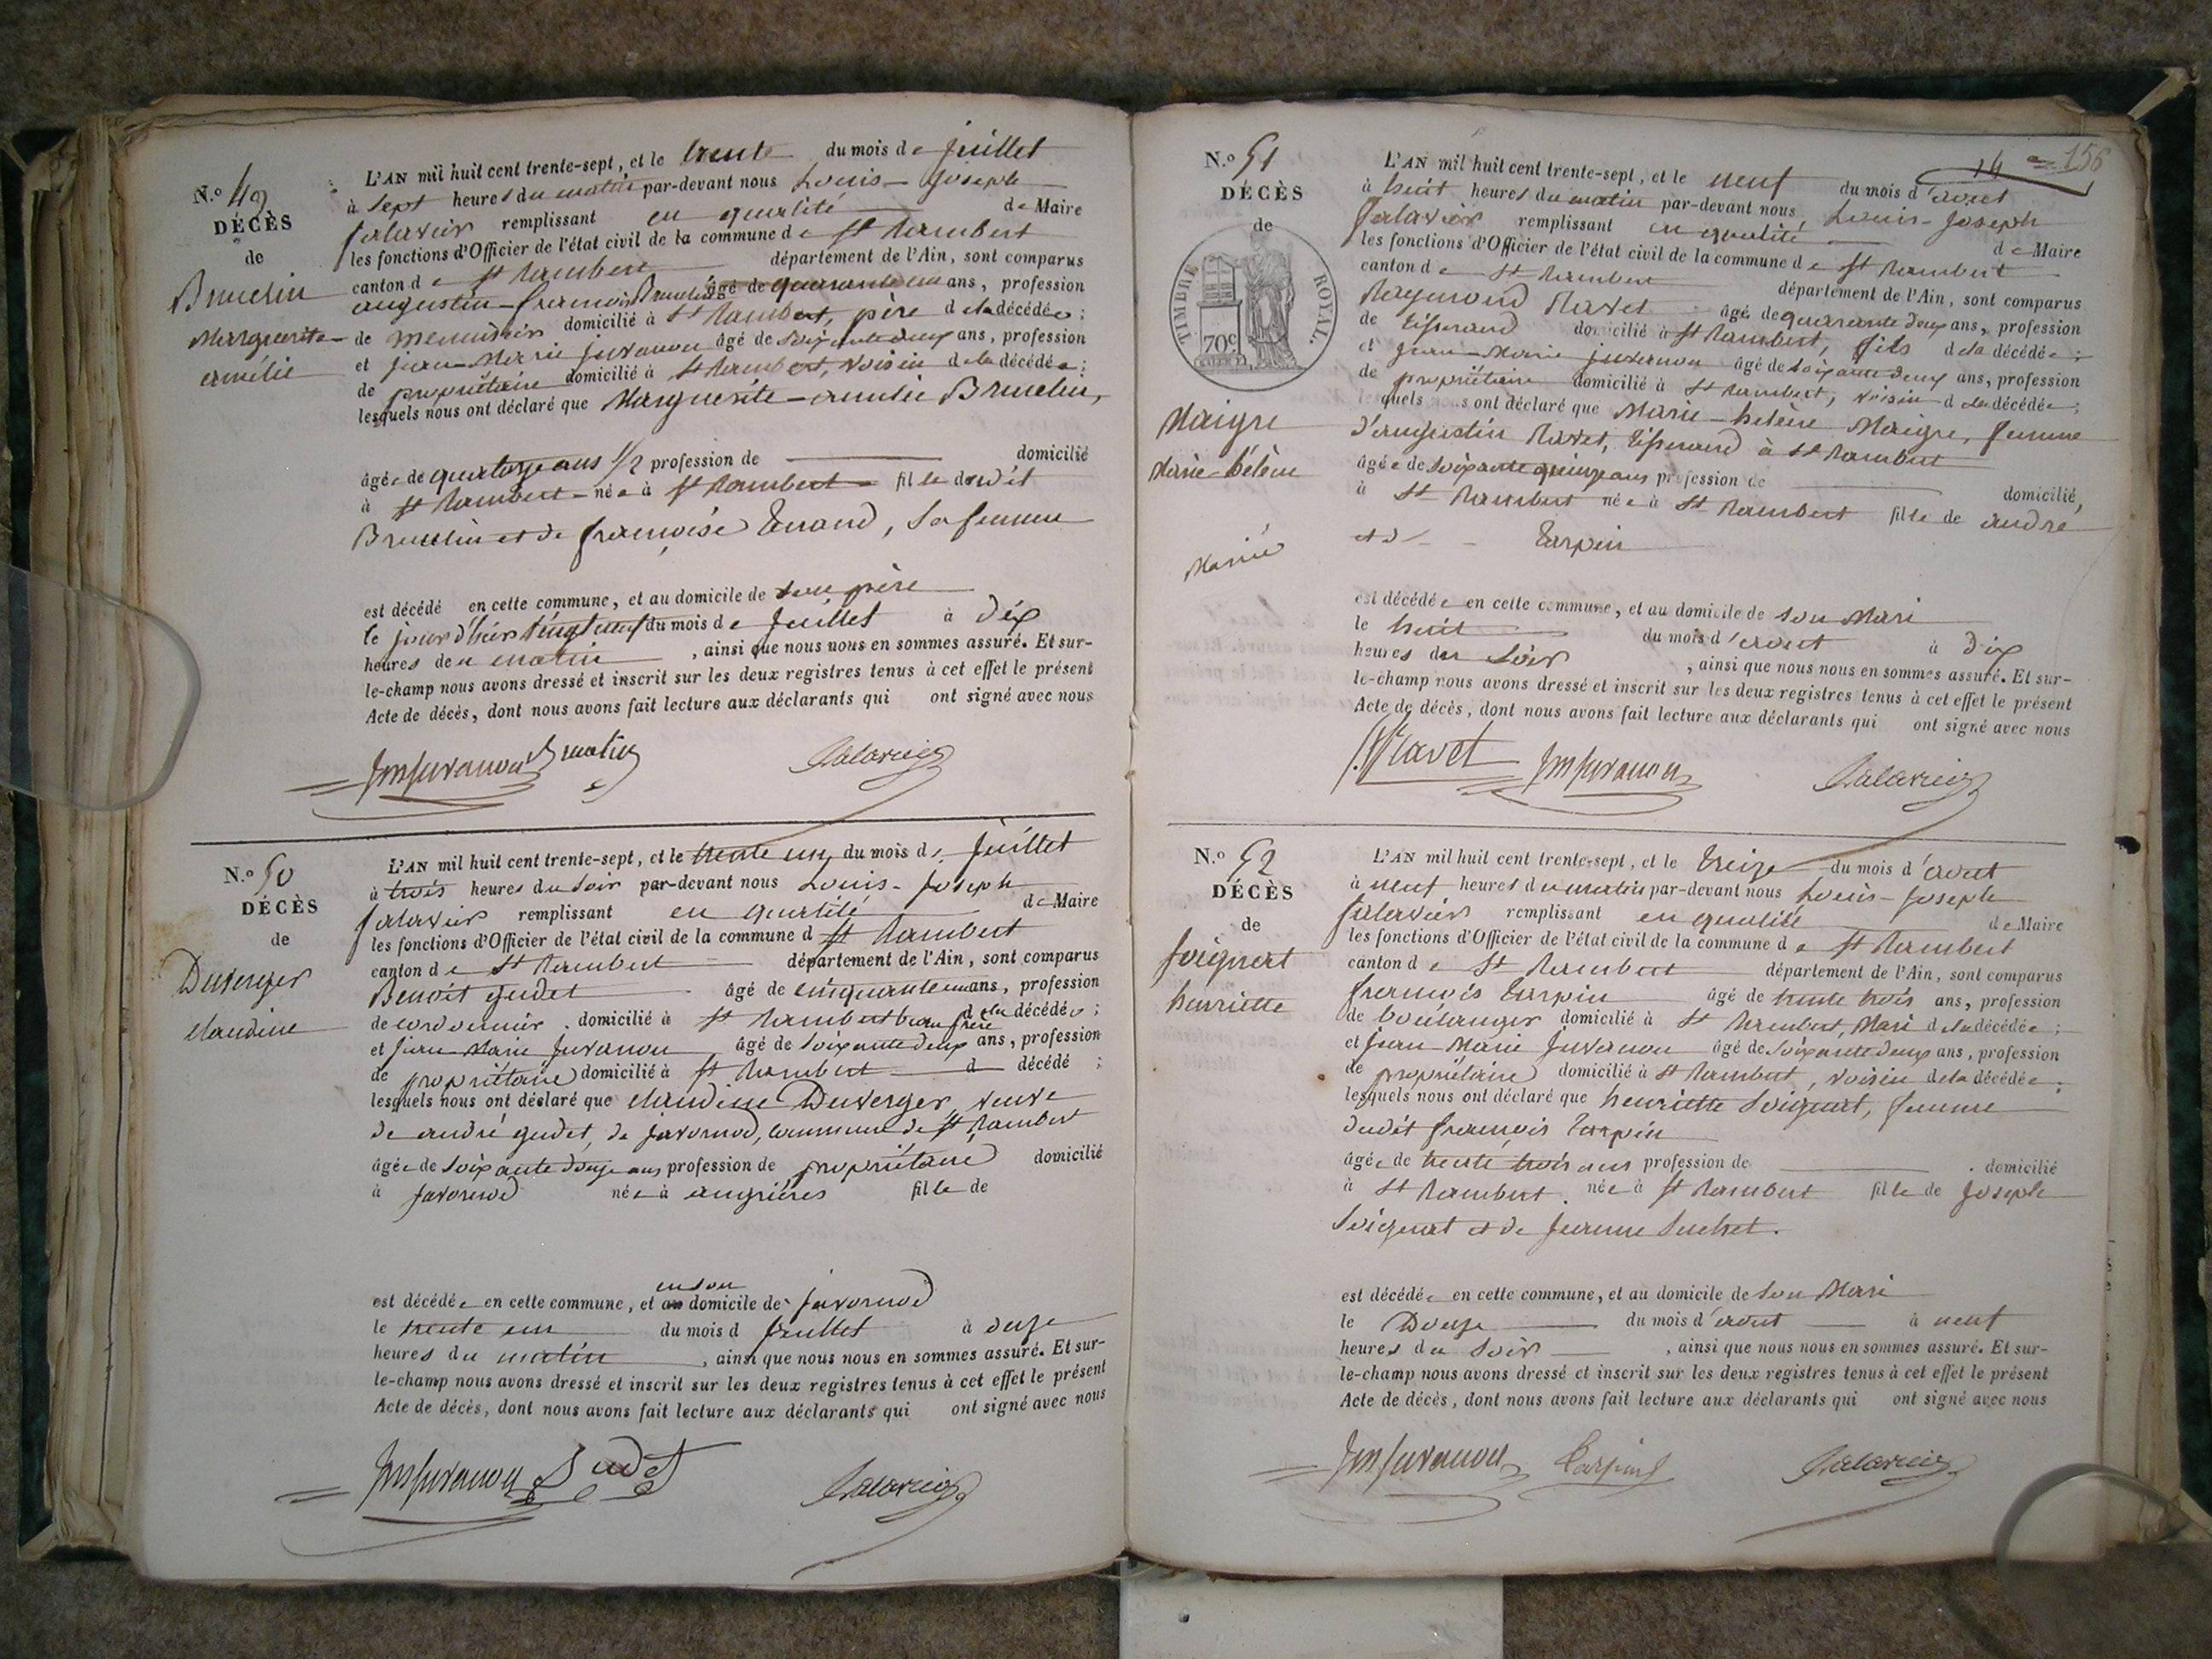 N.o 49
DÉCÈS
de
Bruelin
Marguerite
amélie
L'AN mil huit cent trente-sept, et le trente du mois de juillet
à sept heures du matin par-devant nous Louis-Joseph
Salavier remplissant en qualité de Maire
les fonctions d'Officier de l'état civil de la commune de St Rambert
canton de St Rambert département de l'Ain, sont comparus
augustin-françois Bruelin âgé de quarante ans, profession
de menuisier domicilié à St Rambert, père de la décédée;
et jean-Marie juvanon âgé de Soixante deux ans, profession
de propriétaire domicilié à St Rambert, voisin de la décédée;
lesquels nous ont déclaré que Marguerite-amélie Bruelin,
âgée de quatorze ans 1/2 profession de domicilié
à St Rambert née à St Rambert fille dudit
Bruelin et de françoise Tenand, Sa femme
est décédé en cette commune, et au domicile de son père
le jour d'hier vingt neuf du mois de juillet à dix
heures du matin, ainsi que nous nous en sommes assuré. Et sur-
le-champ nous avons dressé et inscrit sur les deux registres tenus à cet effet le présent
Acte de décès, dont nous avons fait lecture aux déclarants qui ont signé avec nous
JM juvanon Bruelin Salavier
N.o 50
DÉCÈS
de
Duverger
claudine
L'AN mil huit cent trente-sept, et le trente un du mois de juillet
à trois heures du soir par-devant nous Louis-Joseph
Salavier remplissant en qualité de Maire
les fonctions d'Officier de l'état civil de la commune d St Rambert
canton de St Rambert département de l'Ain, sont comparus
Benoit gudet âgé de cinquante un ans, profession
de cordonnier domicilié à St Rambert beau frère de la décédée;
et jean-Marie juvanon âgé de Soixante deux ans, profession
de propriétaire domicilié à St Rambert d décédé;
lesquels nous ont déclaré que claudine Duverger, veuve
de andré gudet, de javornod, commune de St Rambert
âgée de Soixante douze ans profession de propriétaire domicilié
à javornod née à angrières fille de
en son
est décédée en cette commune, et au domicile de javornod
le trente un du mois d juillet à onze
heures du matin, ainsi que nous nous en sommes assuré. Et sur-
le-champ nous avons dressé et inscrit sur les deux registres tenus à cet effet le présent
Acte de décès, dont nous avons fait lecture aux déclarants qui ont signé avec nous
JM juvanon Gudet Salavier
156
N.o 51
DÉCÈS
de
TIMBRE ROYAL.
70c
Maigre
Marie-hélène
Mariée
L'AN mil huit cent trente-sept, et le neuf du mois d'aout
à huit heures du matin par-devant nous Louis-Joseph
Salavier remplissant en qualité de Maire
les fonctions d'Officier de l'état civil de la commune de St Rambert
canton de St Rambert département de l'Ain, sont comparus
Raymond Ravet âgé de quarante deux ans, profession
de tisserand domicilié à St Rambert, fils de la décédée;
et jean-Marie juvanon âgé de Soixante deux ans, profession
de propriétaire domicilié à St Rambert, voisin de la décédée;
lesquels nous ont déclaré que Marie-heleine Maigre, femme
d'augustin Ravet, tisserand à St Rambert
âgée de Soixante quinze ans profession de domicilié,
à St Rambert née à St Rambert fille de andré
et d Tarpin
est décédée en cette commune, et au domicile de son Mari
le huit du mois d'aout à dix
heures du soir, ainsi que nous nous en sommes assuré. Et sur-
le-champ nous avons dressé et inscrit sur les deux registres tenus à cet effet le présent
Acte de décès, dont nous avons fait lecture aux déclarants qui ont signé avec nous
Ravet JM juvanon Salavier
N.o 52
DÉCÈS
de
Soignert
henriette
L'AN mil huit cent trente-sept, et le treize du mois d'aout
à neuf heures du matin par-devant nous Louis-Joseph
Salavier remplissant en qualité de Maire
les fonctions d'Officier de l'état civil de la commune de St Rambert
canton de St Rambert département de l'Ain, sont comparus
françois Tarpin âgé de trente trois ans, profession
de boulanger domicilié à St Rambert, Mari de la décédée;
et jean-Marie juvanon âgé de Soixante deux ans, profession
de propriétaire domicilié à St Rambert, voisin de la décédée;
lesquels nous ont déclaré que henriette Soignert, femme
dudit françois Tarpin
âgée de trente trois ans profession de domicilié
à St Rambert née à St Rambert fille de joseph
Soignert et de jeanne Suchet.
est décédée en cette commune, et au domicile de son Mari
le Douze du mois d'aout à neuf
heures du soir, ainsi que nous nous en sommes assuré. Et sur-
le-champ nous avons dressé et inscrit sur les deux registres tenus à cet effet le présent
Acte de décès, dont nous avons fait lecture aux déclarants qui ont signé avec nous
JM juvanon Tarpin Salavier